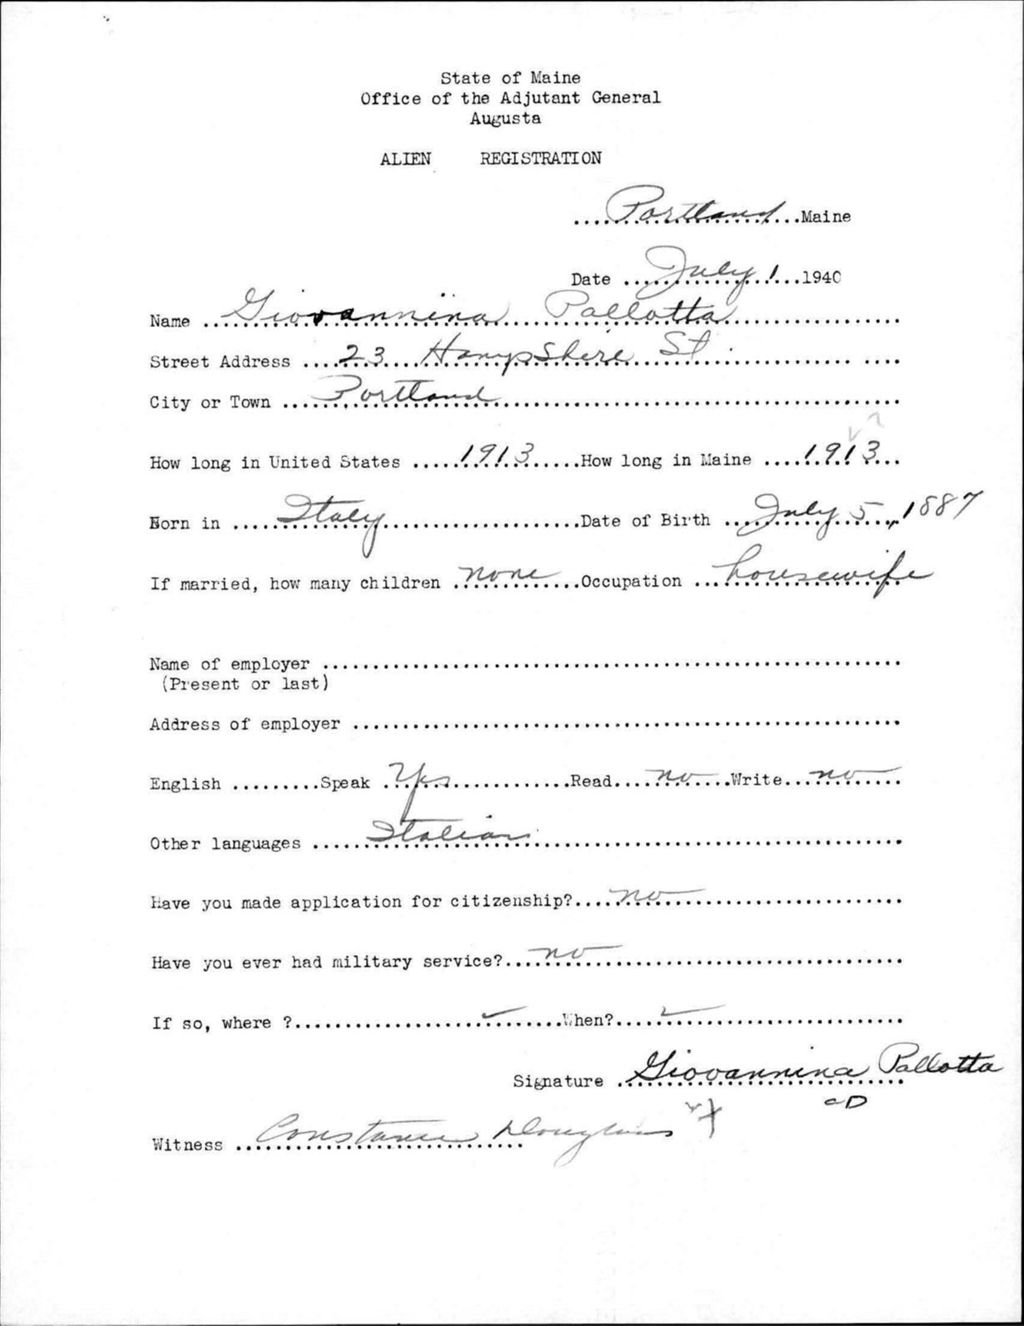 State of Maine
Office of the Adjutant General
Augusta
ALIEN REGISTRATION
Portland Maine
Date July 1 1940
Name Giovannina Pallotta
Street Address 23 Hampshire St.
City or Town Portland
How long in United States 1913 How long in Maine 1913
Born in Italy Date of Birth July 5, 1887
If married, how many children none Occupation housewife
Name of employer
(Present or last)
Address of employer
English Speak Yes Read no Write no
Other languages Italian
Have you made application for citizenship? no
Have you ever had military service? no
If so, where ? When?
Signature Giovannina Pallotta
CD
Witness Constance Douglass